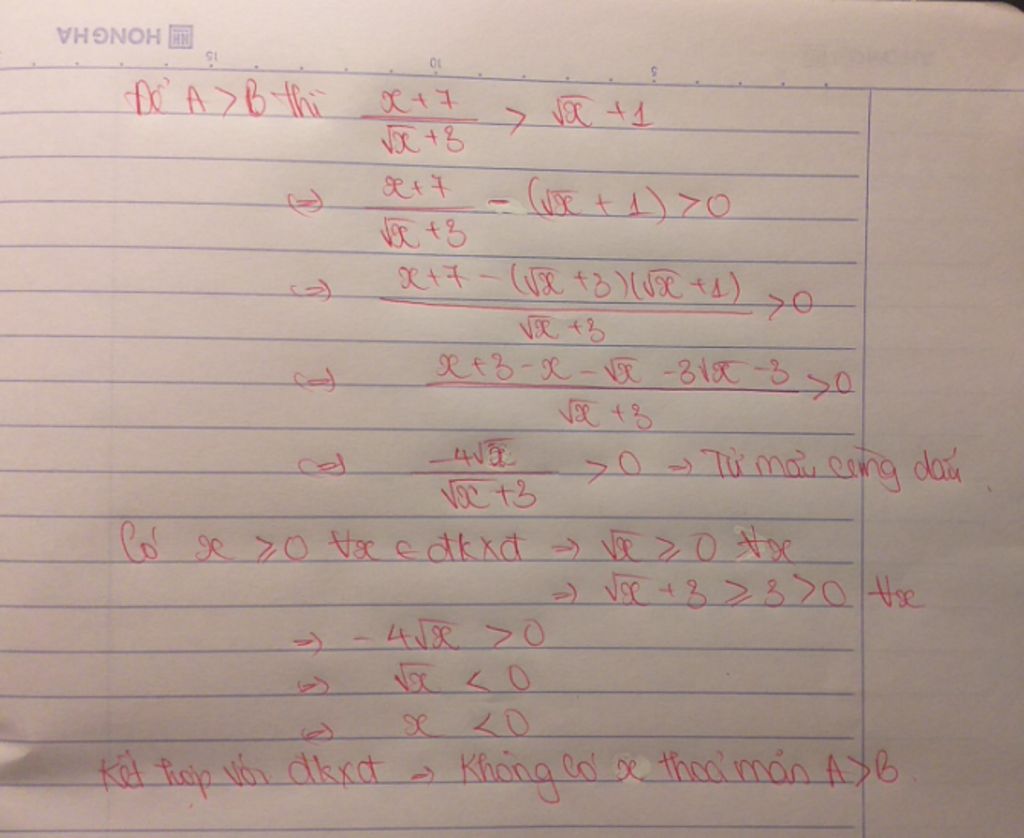 HONG HA
15 10 5
Để A > B thì \frac{x+7}{\sqrt{x}+3} > \sqrt{x}+1
⇔ \frac{x+7}{\sqrt{x}+3} - (\sqrt{x}+1) > 0
⇔ \frac{x+7-(\sqrt{x}+3)(\sqrt{x}+1)}{\sqrt{x}+3} > 0
⇔ \frac{x+3-x-\sqrt{x}-3\sqrt{x}-3}{\sqrt{x}+3} > 0
⇔ \frac{-4\sqrt{x}}{\sqrt{x}+3} > 0 → Tử mẫu cùng dấu.
Có x ⩾ 0 ∀x ∈ đkxđ ⇒ \sqrt{x} ⩾ 0 ∀x
⇒ \sqrt{x}+3 ⩾ 3 > 0 ∀x
⇒ -4\sqrt{x} > 0
⇔ \sqrt{x} < 0
⇔ x < 0
Kết hợp với đkxđ → Không có x thoả mãn A > B.